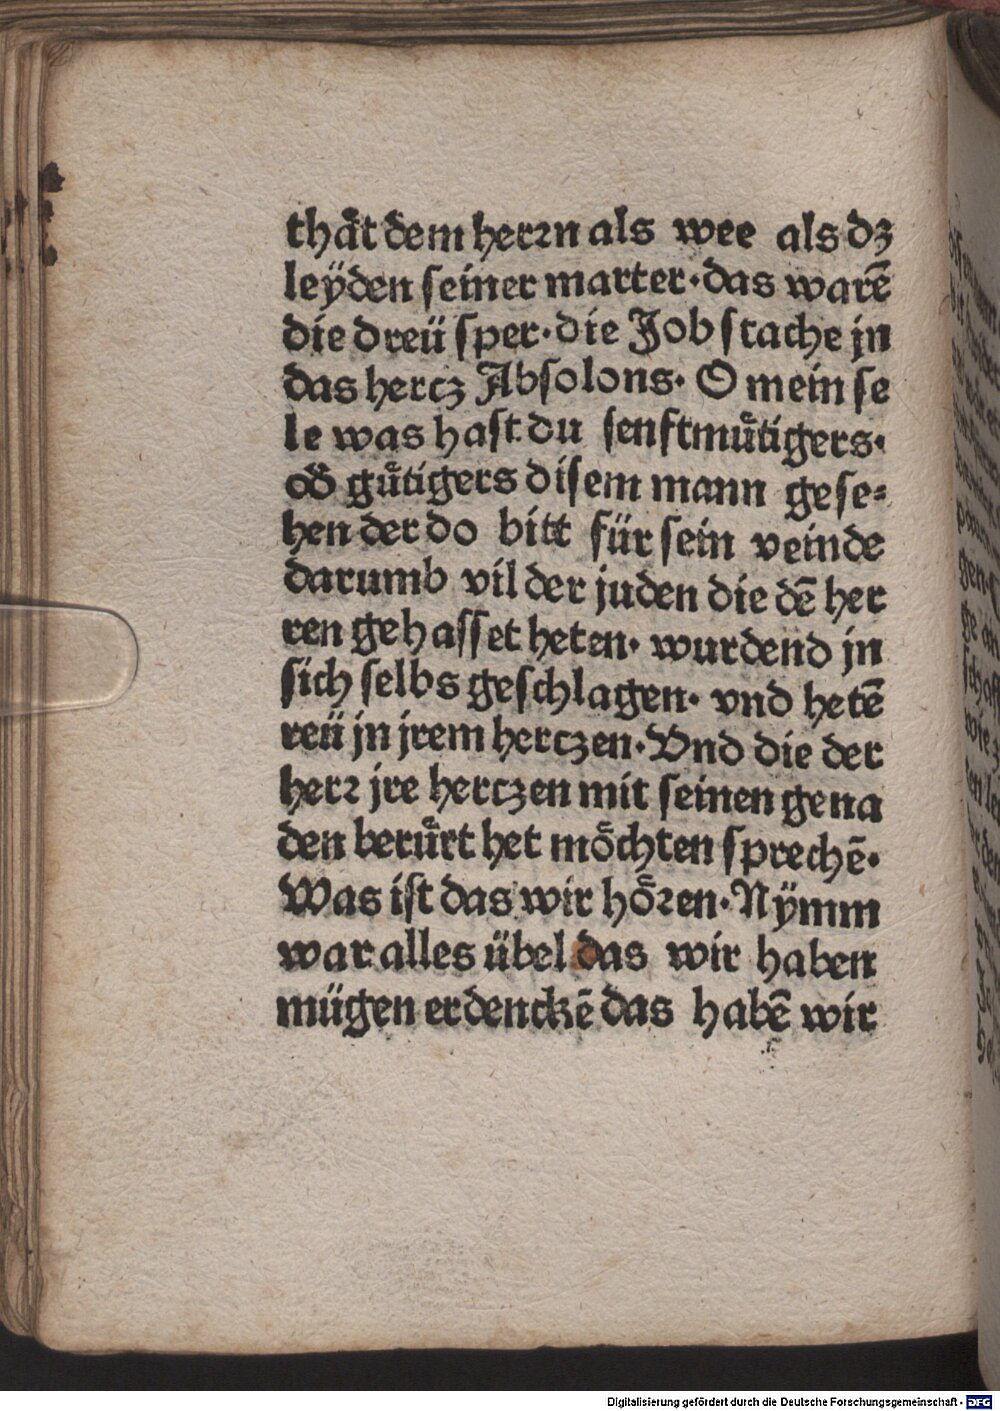 thaͤt dem herꝛn als wee als dz
leÿden seiner marter·das warē
die dreü sper·die Job stache jn
das hercz Absolons· O mein se
le was hast du senftmuͤtigers·
od̕ guͤtigers disem mann gese⸗
hen der do bitt für sein veinde
darumb vil der juden die dē her
ren gehasset heten· wurdend jn
sich selbs geschlagen· vnd hetē
reü jn jrem herczen·Vnd die der
herꝛ jre herczen mit seinen gena
den beruͤrt het moͤchten sprechē·
Was ist das wir hoͤꝛen·Nÿmm
war alles übel das wir haben
mügen erdenckē das habē wir
Digitalisierung gefördert durch die Deutsche Forschungsgemeinschaft - DFG